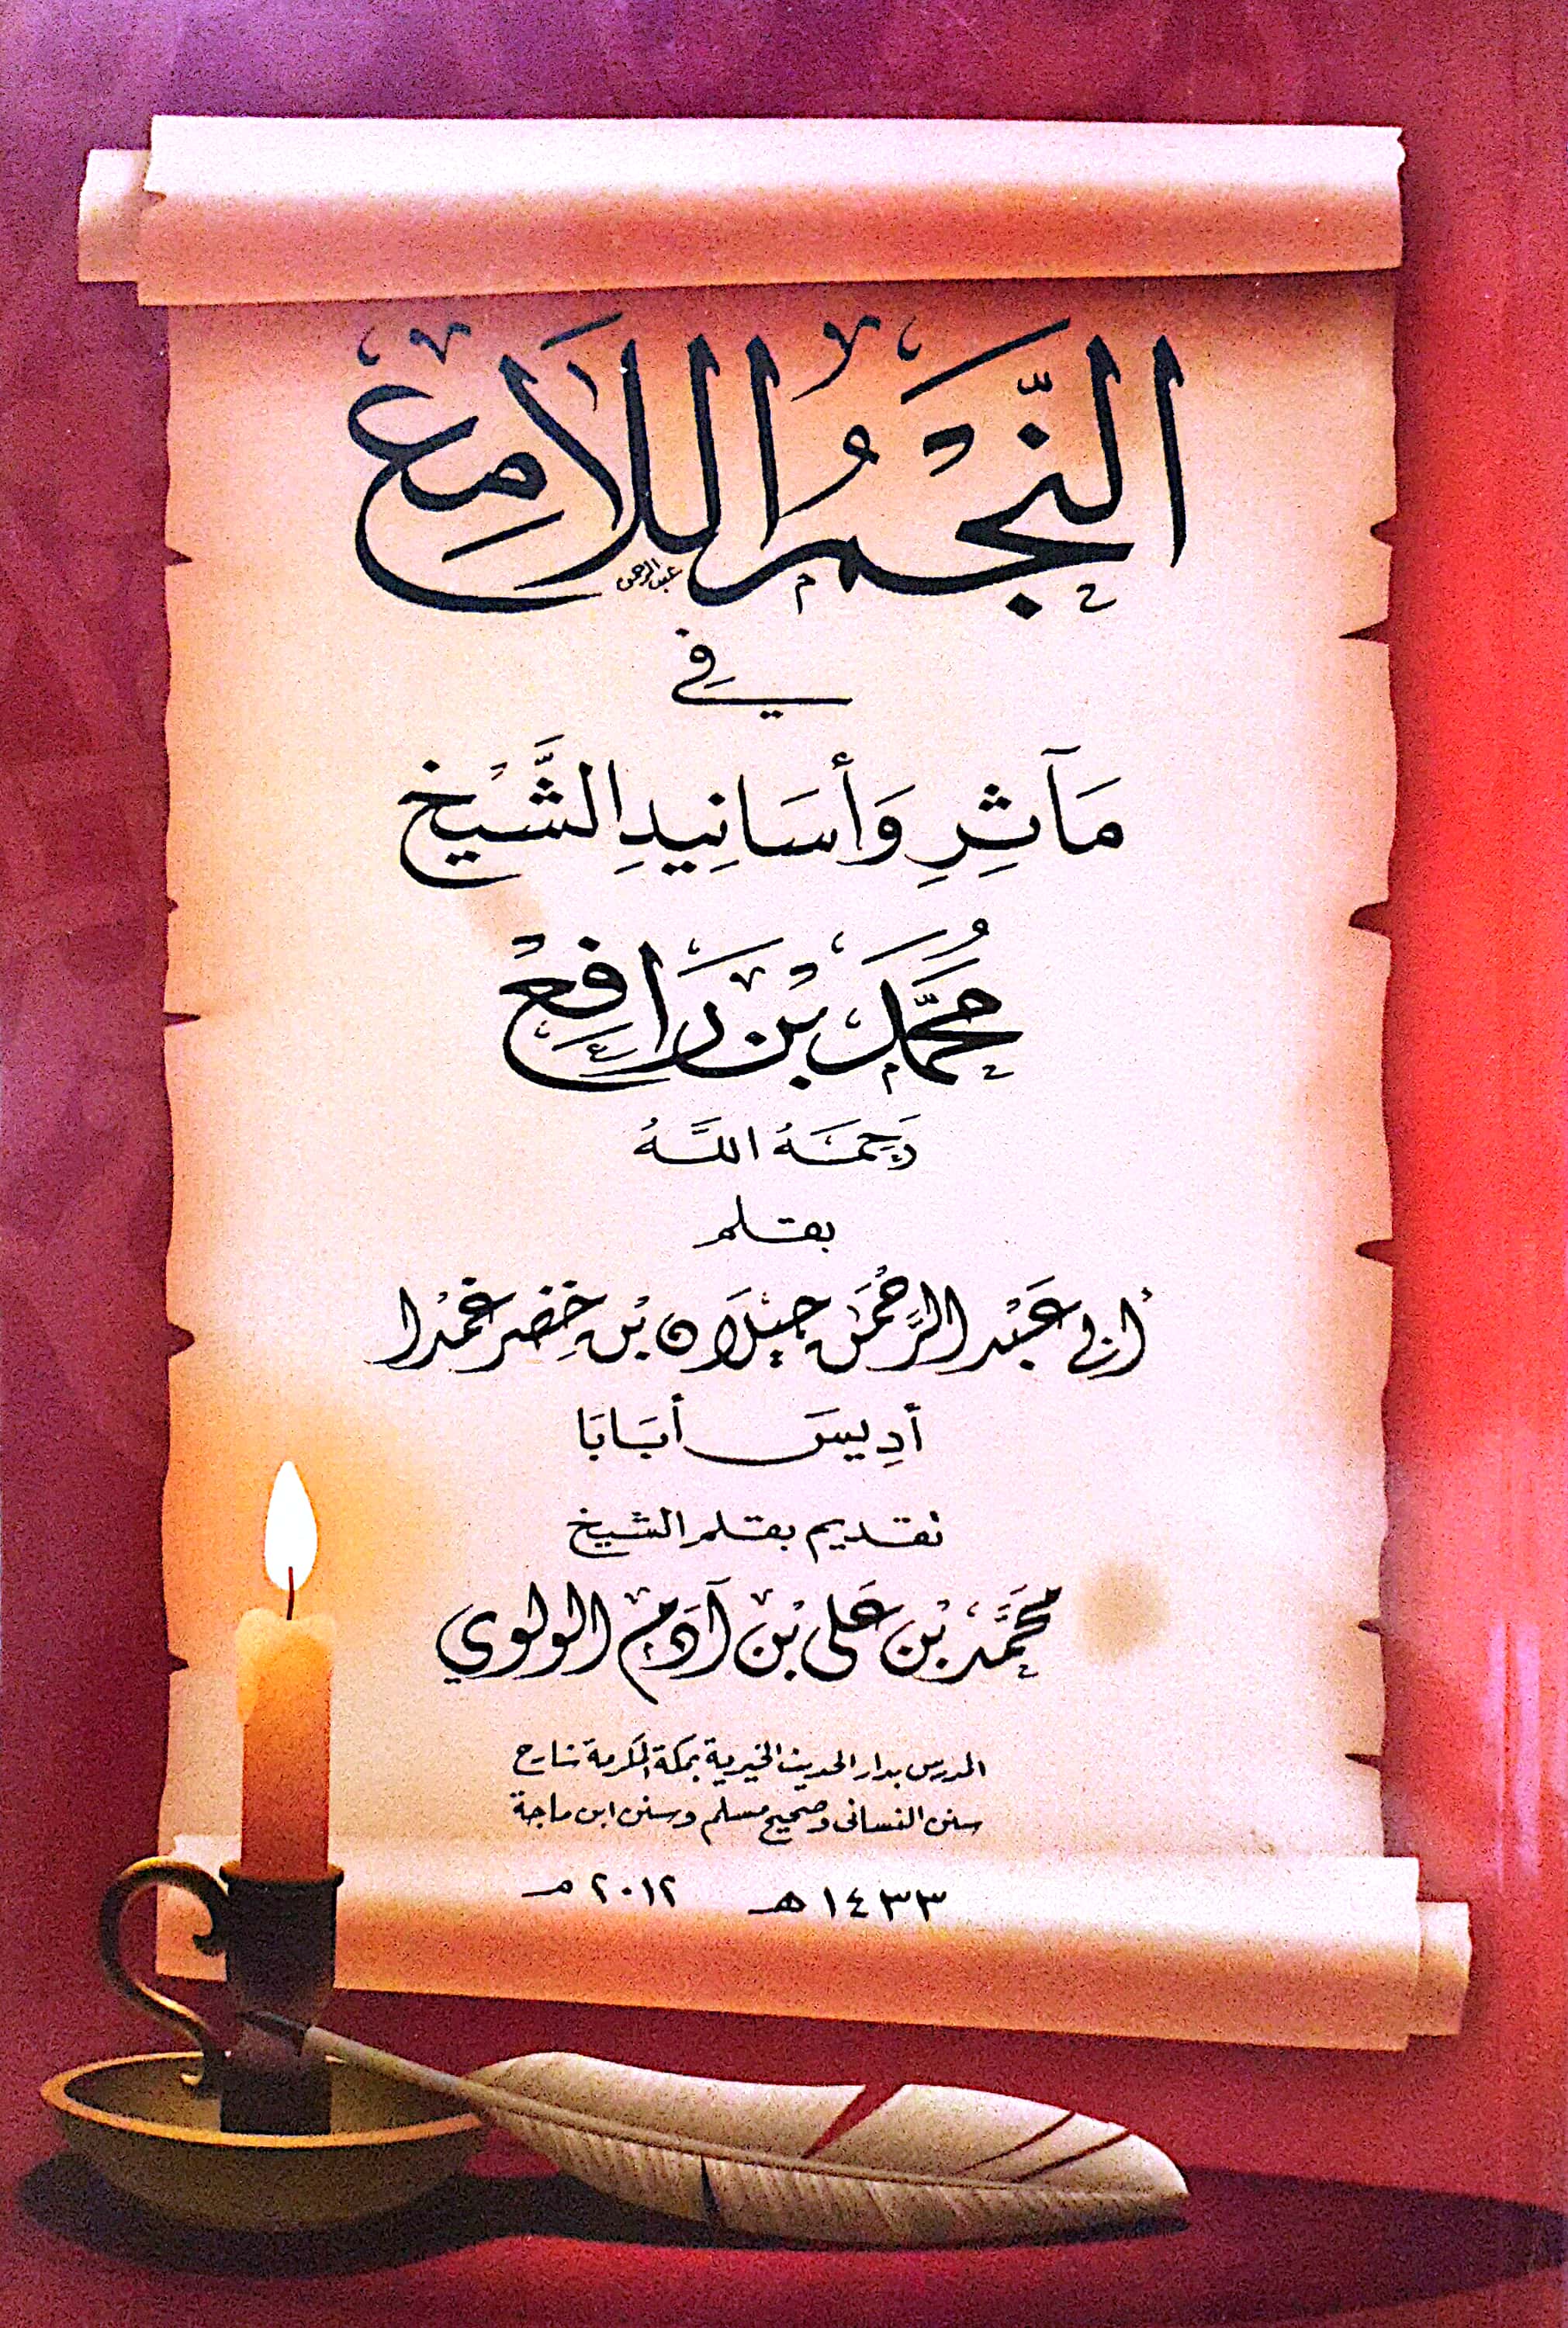 النَّجْمُ اللَّامِعُ
عبد الرحمن
في
مَآثِرِ وَأَسَانِيدِ الشَّيْخ
مُحَمَّد بْن رَافِعْ
رَحِمَهُ اللَّهُ
بقلم
أبي عَبْد الرَّحْمٰن جيْلَان بْن خِضِر غمْدا
أدِيسَ أبَابَا
تقديم بقلم الشيخ
محَمَّد بْن عَلي بْن آدَم الولوي
المدرس بدار الحديث الخيرية بمكة المكرمة شارح
سنن النسائى وصحيح مسلم وسنن ابن ماجة
١٤٣٣ هـ ٢٠١٢ م